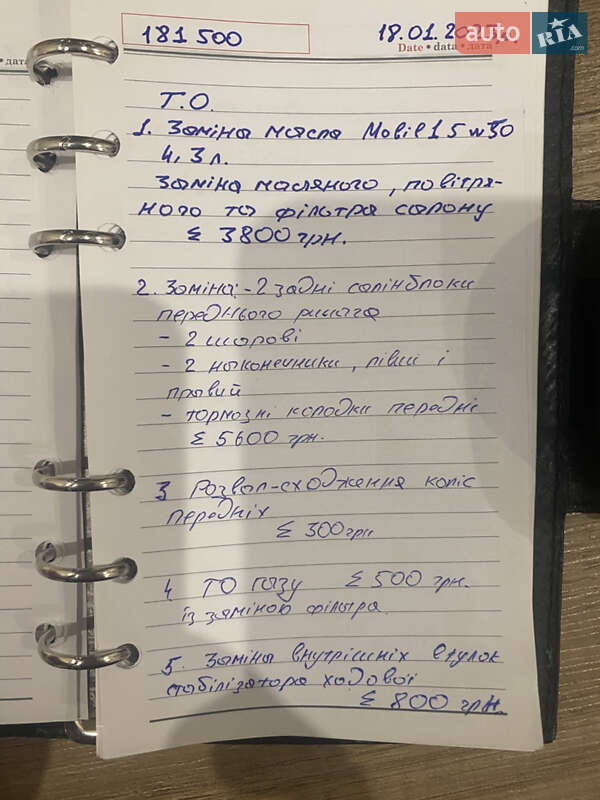 181 500
18.01.2
auto RIA.com
Date • data • дата
• дата
Т.О.
1. Заміна масла Mobil 1 5w30
4,3 л.
Заміна масляного, повітря-
ного та фільтра салону
Σ 3800 грн.
2. Заміна: - 2 задні салінблоки
переднього ричага
- 2 шарові
- 2 наконечники, лівий і
правий
- тормозні колодки передні
Σ 5600 грн.
3 Розвал-сходження коліс
передніх
Σ 300 грн
4 ТО газу Σ 500 грн.
із заміною фільтра.
5. Заміна внутрішніх втулок
стабілізатора ходової
Σ 800 грн.